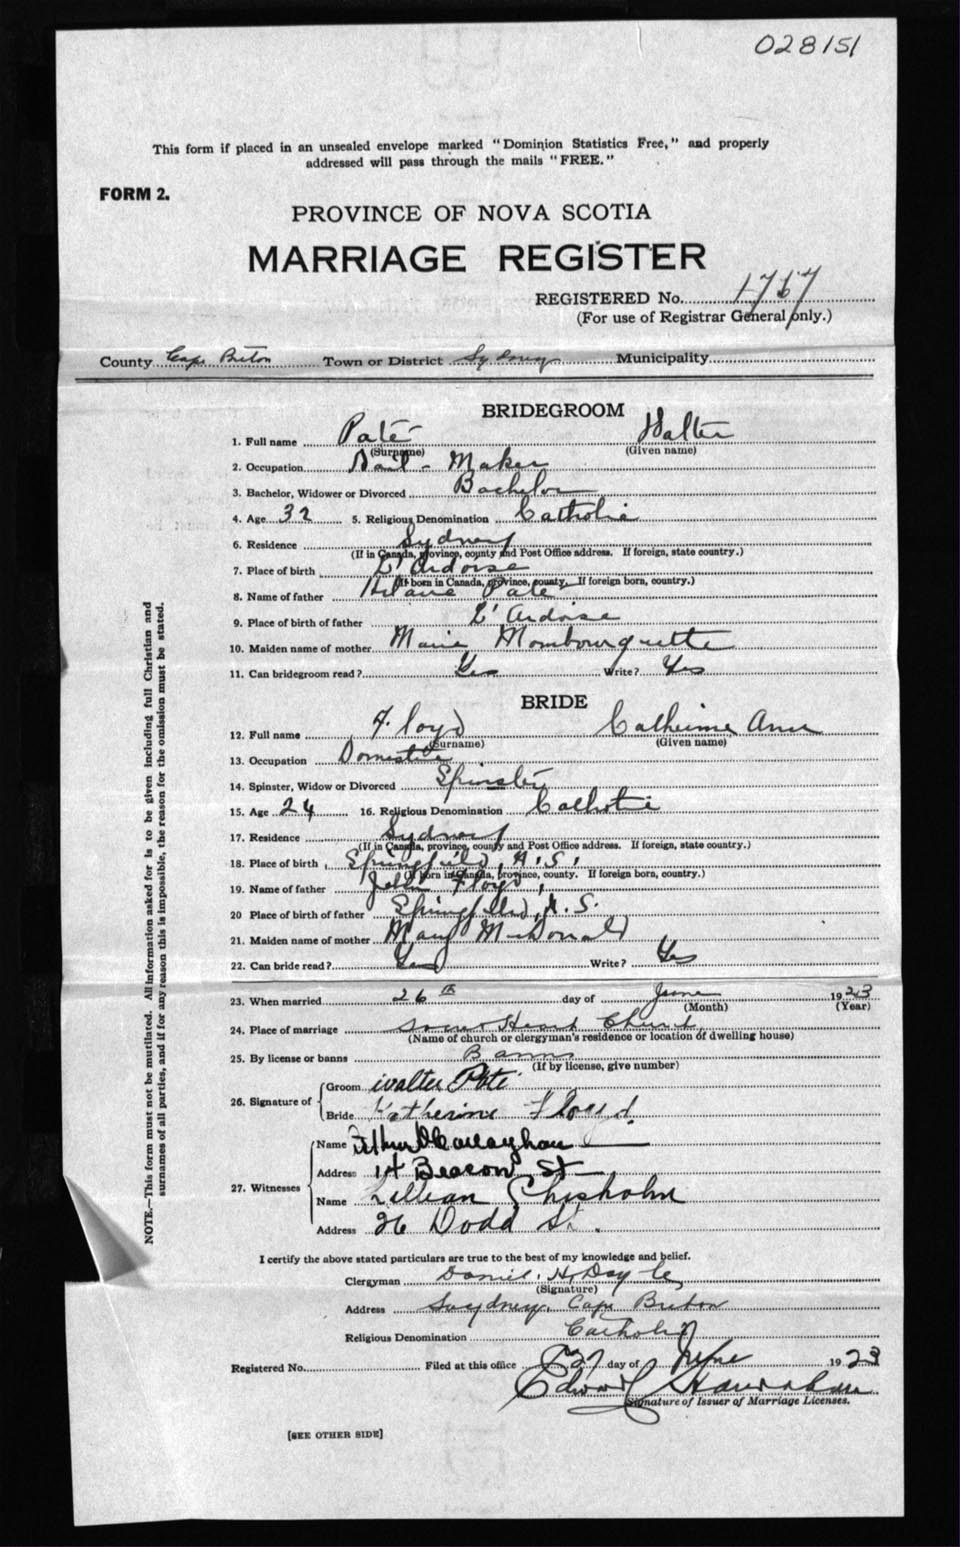 028151
This form if placed in an unsealed envelope marked "Dominion Statistics Free," and properly
addressed will pass through the mails "FREE."
FORM 2.
PROVINCE OF NOVA SCOTIA
MARRIAGE REGISTER
REGISTERED No. 1767
(For use of Registrar General only.)
County Cape Breton Town or District Sydney Municipality
BRIDEGROOM
1. Full name Paté Walter
(Surname) (Given name)
2. Occupation Nail-Maker
3. Bachelor, Widower or Divorced Bachelor
4. Age 32 5. Religious Denomination Catholic
6. Residence Sydney
(If in Canada, province, county and Post Office address. If foreign, state country.)
7. Place of birth L'Ardoise
(If born in Canada, province, county. If foreign born, country.)
8. Name of father Hilaire Pate
9. Place of birth of father L'Ardoise
10. Maiden name of mother Marie Mombourquette
11. Can bridegroom read? Yes Write? Yes
BRIDE
12. Full name Floyd Catherine Ann
(Surname) (Given name)
13. Occupation Domestic
14. Spinster, Widow or Divorced Spinster
15. Age 24 16. Religious Denomination Catholic
17. Residence Sydney
(If in Canada, province, county and Post Office address. If foreign, state country.)
18. Place of birth Springfield, N.S.
(If born in Canada, province, county. If foreign born, country.)
19. Name of father John Floyd
20 Place of birth of father Springfield, N.S.
21. Maiden name of mother Mary McDonald
22. Can bride read? Yes Write? Yes
23. When married 26th day of June 1923
(Month) (Year)
24. Place of marriage Sacred Heart Church
(Name of church or clergyman's residence or location of dwelling house)
25. By license or banns Banns
(If by license, give number)
26. Signature of
Groom Walter Pate
Bride Katherine Floyd
27. Witnesses
Name O'Callaghan
Address 14 Beacon St
Name Lillian Chisholm
Address 26 Dodd St.
I certify the above stated particulars are true to the best of my knowledge and belief.
Clergyman Daniel H. Doyle
(Signature)
Address Sydney, Cape Breton
Religious Denomination Catholic
Registered No. Filed at this office 27 day of June 1923
Edward Hanrahan
Signature of Issuer of Marriage Licenses.
[SEE OTHER SIDE]
NOTE.—This form must not be mutilated. All information asked for is to be given including full Christian and
surnames of all parties, and if for any reason this is impossible, the reason for the omission must be stated.